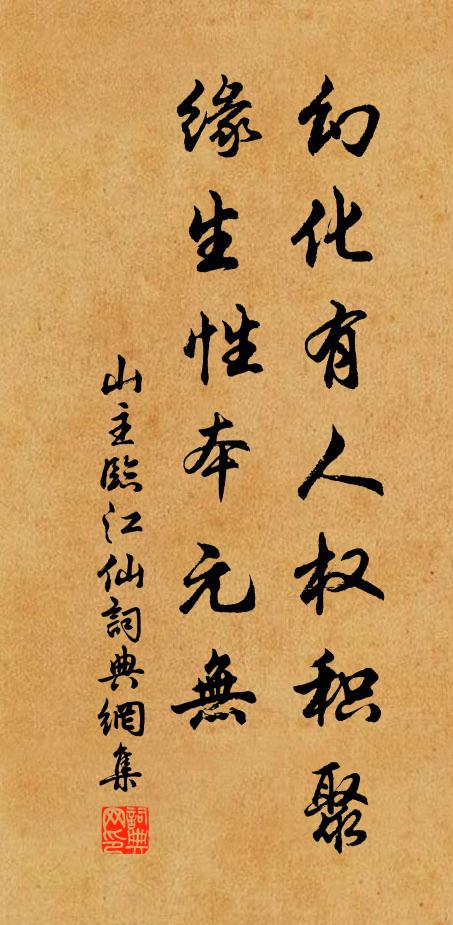 幻化有人权积聚
缘生性本元無
山主臨江仙詞典網集
詞典网印